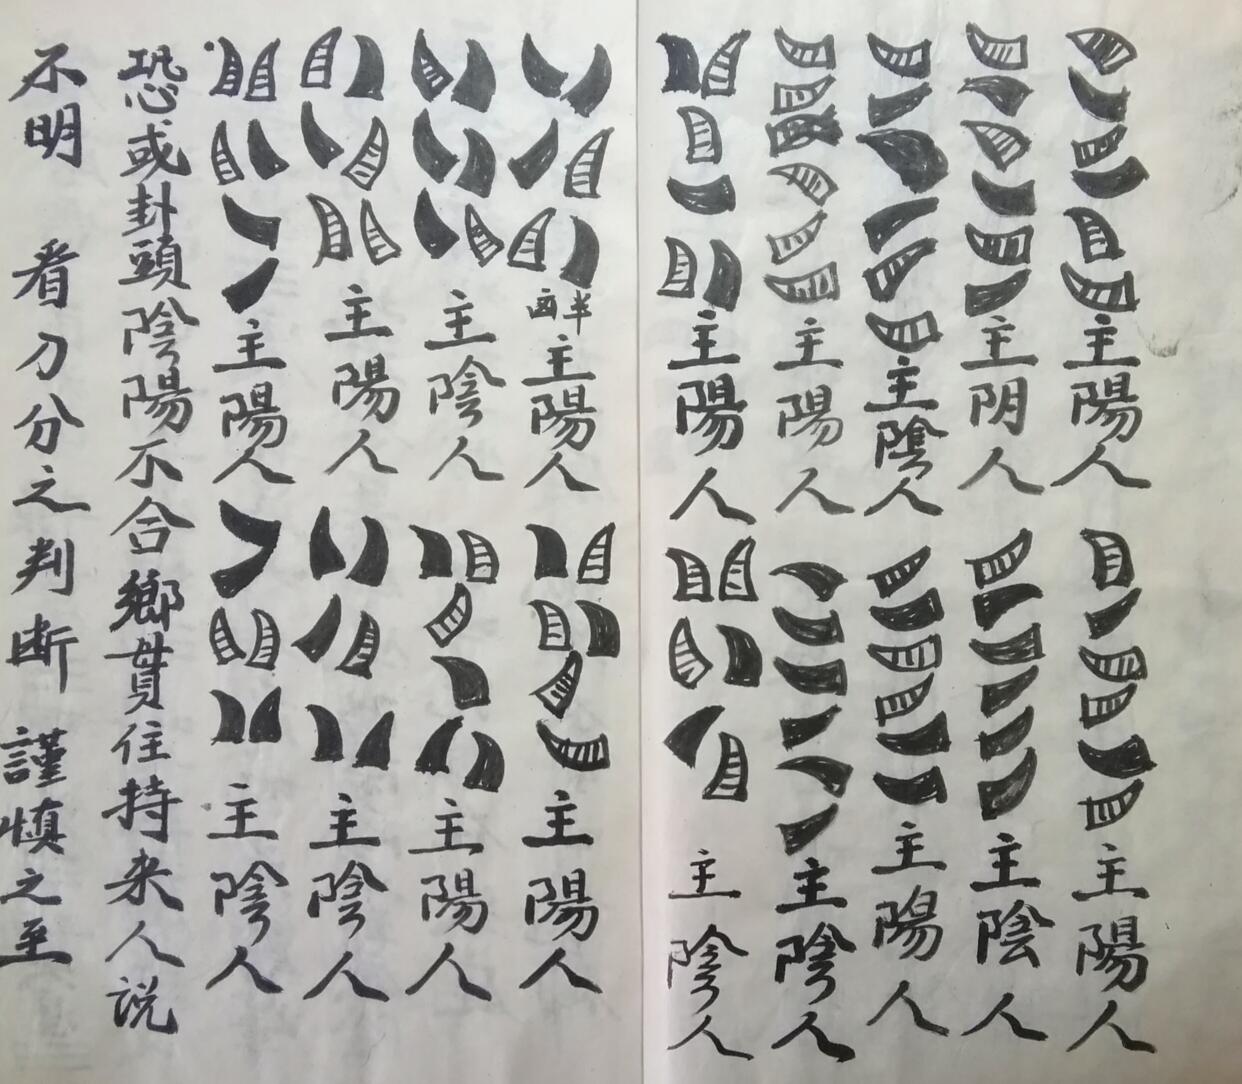 主陽人
主陽人
主阴人
主陰人
主陰人
主陽人
主陽人
主陰人
主陽人
主陰人
半酉
主陽人
主陽人
主陰人
主陽人
主陽人
主陰人
主陽人
主陰人
恐或卦頭陰陽不合鄉貫住持来人説
不明 看刀分之判断 謹慎之至